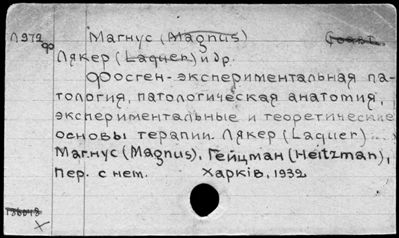 Л979 Магнус (Magnus)
Лякер (Laquer) и др.
Фосген-экспериментальная па-
тология, патологическая анатомия,
экспериментальные и теоретические
основы терапии. Лякер (Laquer)...
Магнус (Magnus), Гейцман (Heitzman),
Пер. с нем. Харкiв, 1932